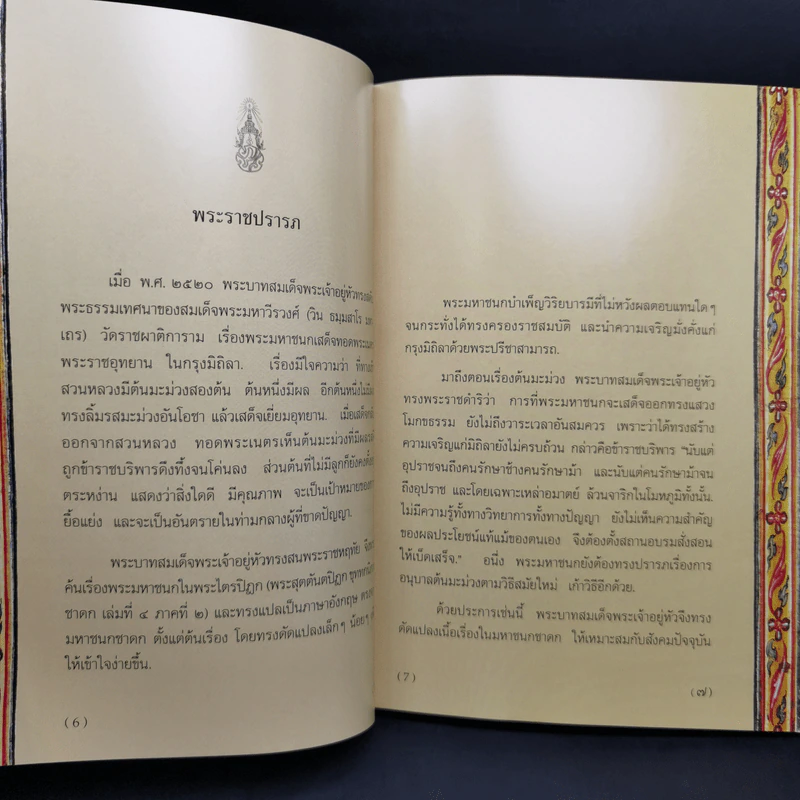 พระราชปรารภ
เมื่อ พ.ศ. ๒๕๒๐ พระบาทสมเด็จพระเจ้าอยู่หัวทรง
พระธรรมเทศนาของสมเด็จพระมหาวีรวงศ์ (วิน ธมฺมสาโร
เถร) วัดราชผาติการาม เรื่องพระมหาชนกเสด็จทอดพระเนตร
พระราชอุทยาน ในกรุงมิถิลา. เรื่องมีใจความว่า ที่ทาง
สวนหลวงมีต้นมะม่วงสองต้น ต้นหนึ่งมีผล อีกต้นหนึ่งไม่มี
ทรงลิ้มรสมะม่วงอันโอชา แล้วเสด็จเยี่ยมอุทยาน. เมื่อเสด็จ
ออกจากสวนหลวง ทอดพระเนตรเห็นต้นมะม่วงที่มีผล
ถูกข้าราชบริพารดึงทึ้งจนโค่นลง ส่วนต้นที่ไม่มีลูกก็ยังคง
ตระหง่าน แสดงว่าสิ่งใดดี มีคุณภาพ จะเป็นเป้าหมายของ
ยื้อแย่ง และจะเป็นอันตรายในท่ามกลางผู้ที่ขาดปัญญา.
พระบาทสมเด็จพระเจ้าอยู่หัวทรงสนพระราชหฤทัย จึง
ค้นเรื่องพระมหาชนกในพระไตรปิฎก (พระสุตตันตปิฎก
ชาดก เล่มที่ ๔ ภาคที่ ๒) และทรงแปลเป็นภาษาอังกฤษ
มหาชนกชาดก ตั้งแต่ต้นเรื่อง โดยทรงดัดแปลงเล็กๆ น้อยๆ
ให้เข้าใจง่ายขึ้น.
(6)
พระมหาชนกบำเพ็ญวิริยบารมีที่ไม่หวังผลตอบแทนใดๆ
จนกระทั่งได้ทรงครองราชสมบัติ และนำความเจริญมั่งคั่งแก่
กรุงมิถิลาด้วยพระปรีชาสามารถ.
มาถึงตอนเรื่องต้นมะม่วง พระบาทสมเด็จพระเจ้าอยู่หัว
ทรงพระราชดำริว่า การที่พระมหาชนกจะเสด็จออกทรงแสวง
โมกขธรรม ยังไม่ถึงวาระเวลาอันสมควร เพราะว่าได้ทรงสร้าง
ความเจริญแก่มิถิลายังไม่ครบถ้วน กล่าวคือข้าราชบริพาร "นับแต่
อุปราชจนถึงคนรักษาช้างคนรักษาม้า และนับแต่คนรักษาม้าจน
ถึงอุปราช และโดยเฉพาะเหล่าอมาตย์ ล้วนจาริกในโมหภูมิทั้งนั้น.
ไม่มีความรู้ทั้งทางวิทยาการทั้งทางปัญญา ยังไม่เห็นความสำคัญ
ของผลประโยชน์แท้แม้ของตนเอง จึงต้องตั้งสถานอบรมสั่งสอน
ให้เบ็ดเสร็จ." อนึ่ง พระมหาชนกยังต้องทรงปรารภเรื่องการ
อนุบาลต้นมะม่วงตามวิธีสมัยใหม่ เก้าวิธีอีกด้วย.
ด้วยประการเช่นนี้ พระบาทสมเด็จพระเจ้าอยู่หัวจึงทรง
ดัดแปลงเนื้อเรื่องในมหาชนกชาดก ให้เหมาะสมกับสังคมปัจจุบัน
(7)
(๗)